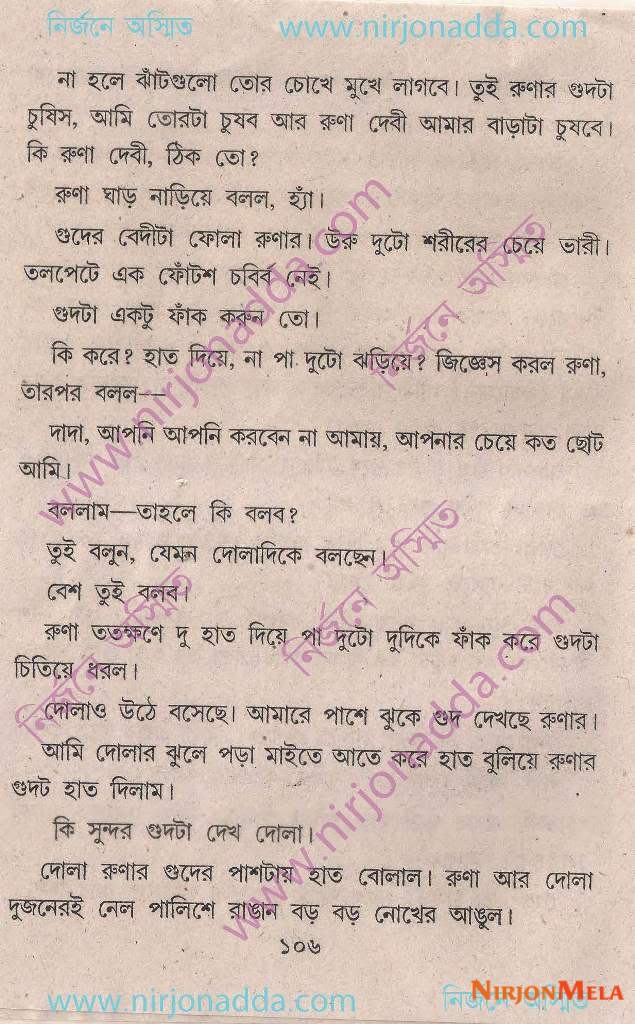 নির্জনে অস্মিত www.nirjonadda.com
না হলে ঝাঁটগুলো তোর চোখে মুখে লাগবে। তুই রুণার গুদটা
চুষিস, আমি তোরটা চুষব আর রুণা দেবী আমার বাড়াটা চুষবে।
কি রুণা দেবী, ঠিক তো?
রুণা ঘাড় নাড়িয়ে বলল, হ্যাঁ।
গুদের বেদীটা ফোলা রুণার। উরু দুটো শরীরের চেয়ে ভারী।
তলপেটে এক ফোঁটশ চবিব নেই।
গুদটা একটু ফাঁক করুন তো।
কি করে? হাত দিয়ে, না পা দুটো ঝড়িয়ে? জিজ্ঞেস করল রুণা,
তারপর বলল—
দাদা, আপনি আপনি করবেন না আমায়, আপনার চেয়ে কত ছোট
আমি।
বললাম—তাহলে কি বলব?
তুই বলুন, যেমন দোলাদিকে বলছেন।
বেশ তুই বলব।
রুণা ততক্ষণে দু হাত দিয়ে পা দুটো দুদিকে ফাঁক করে গুদটা
চিতিয়ে ধরল।
দোলাও উঠে বসেছে। আমারে পাশে ঝুকে গুদ দেখছে রুণার।
আমি দোলার ঝুলে পড়া মাইতে আতে করে হাত বুলিয়ে রুণার
গুদট হাত দিলাম।
কি সুন্দর গুদটা দেখ দোলা।
দোলা রুণার গুদের পাশটায় হাত বোলাল। রুণা আর দোলা
দুজনেরই নেল পালিশে রাঙান বড় বড় নোখের আঙুল।
১০৬
www.nirjonadda.com নির্জনে অস্মিত
NIRJONMELA
www.nirjonadda.com
নির্জনে অস্মিত
নির্জনে অস্মিত
নির্জনে অস্মিত
www.nirjonadda.com